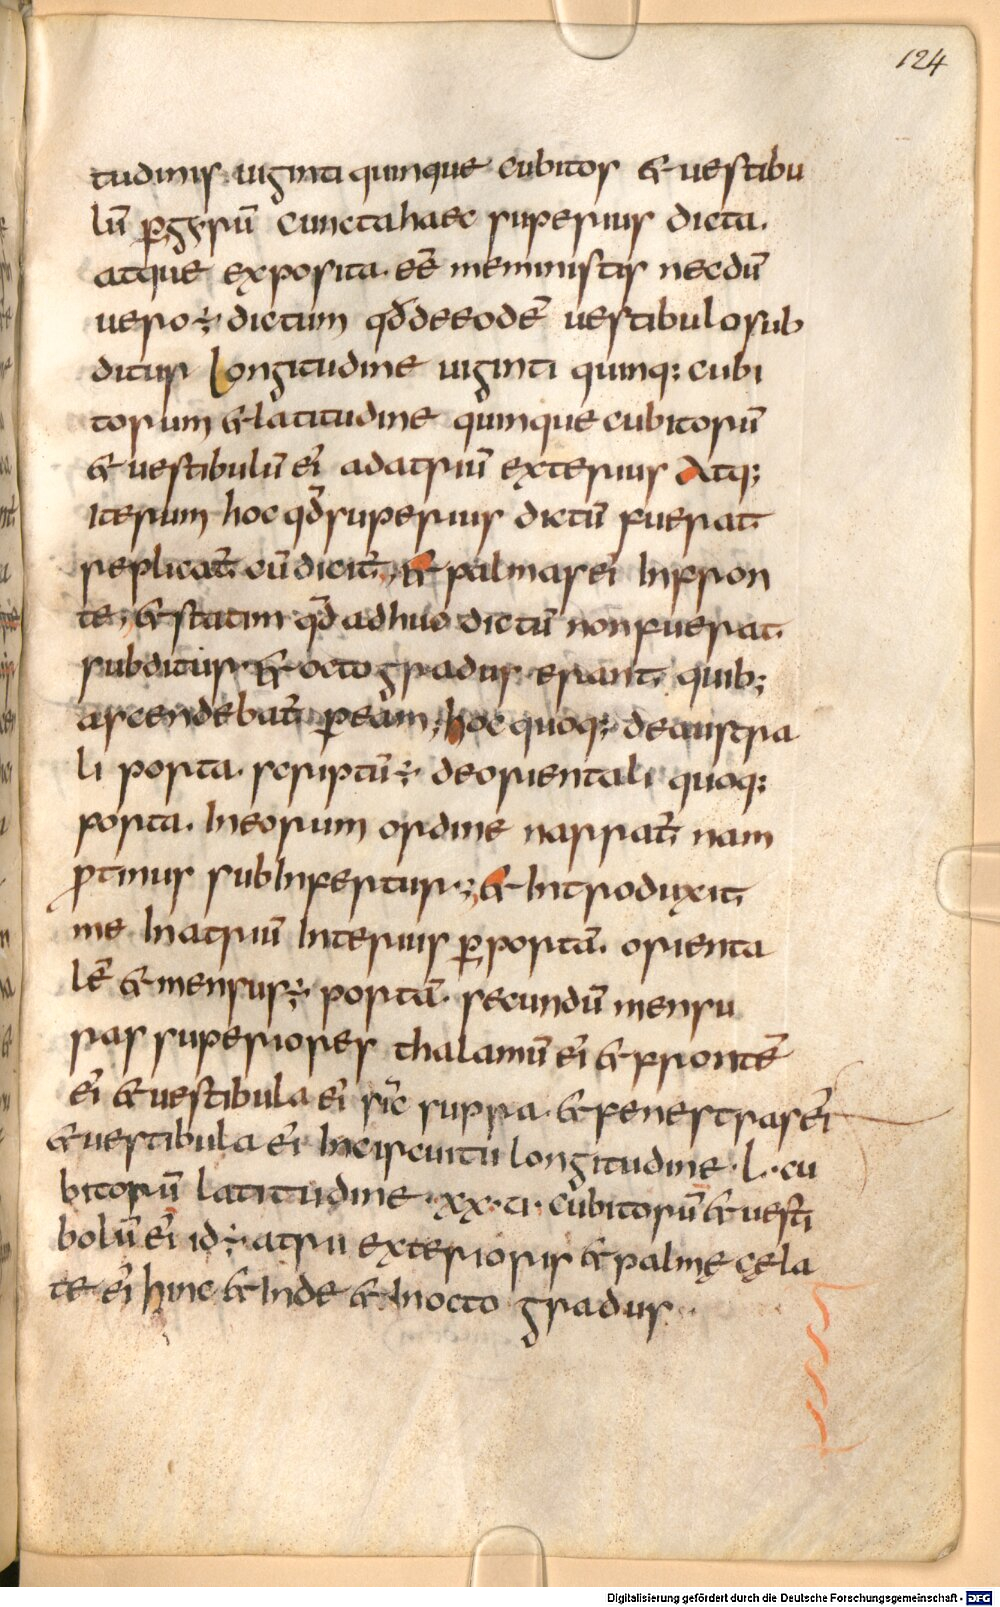 124
tudinis uiginti quinque cubitos & uestibu
lū ꝑ gyrū cuncta haec superius dicta.
atque exposita. eē meministis necdū
uero ÷ dictum qđ de eodē uestibulo sub
ditur Longitudine uiginti quinq: cubi
torum & latitudine quinque cubitorū
& uestibulū ei̅ ad atriū exterius Atq;
Iterum hoc qđ superius dictū fuerat
replicat̅ cū dicit, & palmas ei̅ In fron
te; & statim qđ adhuc dictū non fuerat
subditur & octo gradus erant quib;
ascendebat̅ ꝑ eam; hoc quoq: de austra
li porta scriptū ÷ de orientali quoq:
porta. In eorum ordine narrat̅ nam
ꝓtinus subInfertur; & Introduxit
me In atriū Interius ꝑ portā orienta
lē & mensus ÷ portā secundū mensu
ras superiores thalamū ei̅ & frontē
ei̅ & uestibula ei̅ sic̅ supra & fenestras ei̅
& uestibula ei̅ In circuitu longitudine · L · cu
bitorū latitudine · xx · ti · cubitorū & uesti
bolū ei̅ id ÷ atrii exterioris & palmę cęla
te ei̅ hinc & Inde & In octo gradus
Digitalisierung gefördert durch die Deutsche Forschungsgemeinschaft - DFG